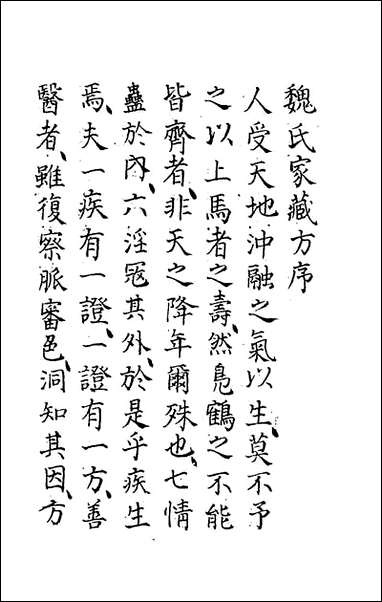 魏氏家藏方序
人受天地沖融之氣以生、莫不予
之以上馬者之壽、然鳧鶴之不能
皆齊者、非天之降年爾殊也、七情
蠱於內、六淫寇其外、於是乎疾生
焉、夫一疾有一證、一證有一方、善
醫者、雖復察脈審色、洞知其因、方